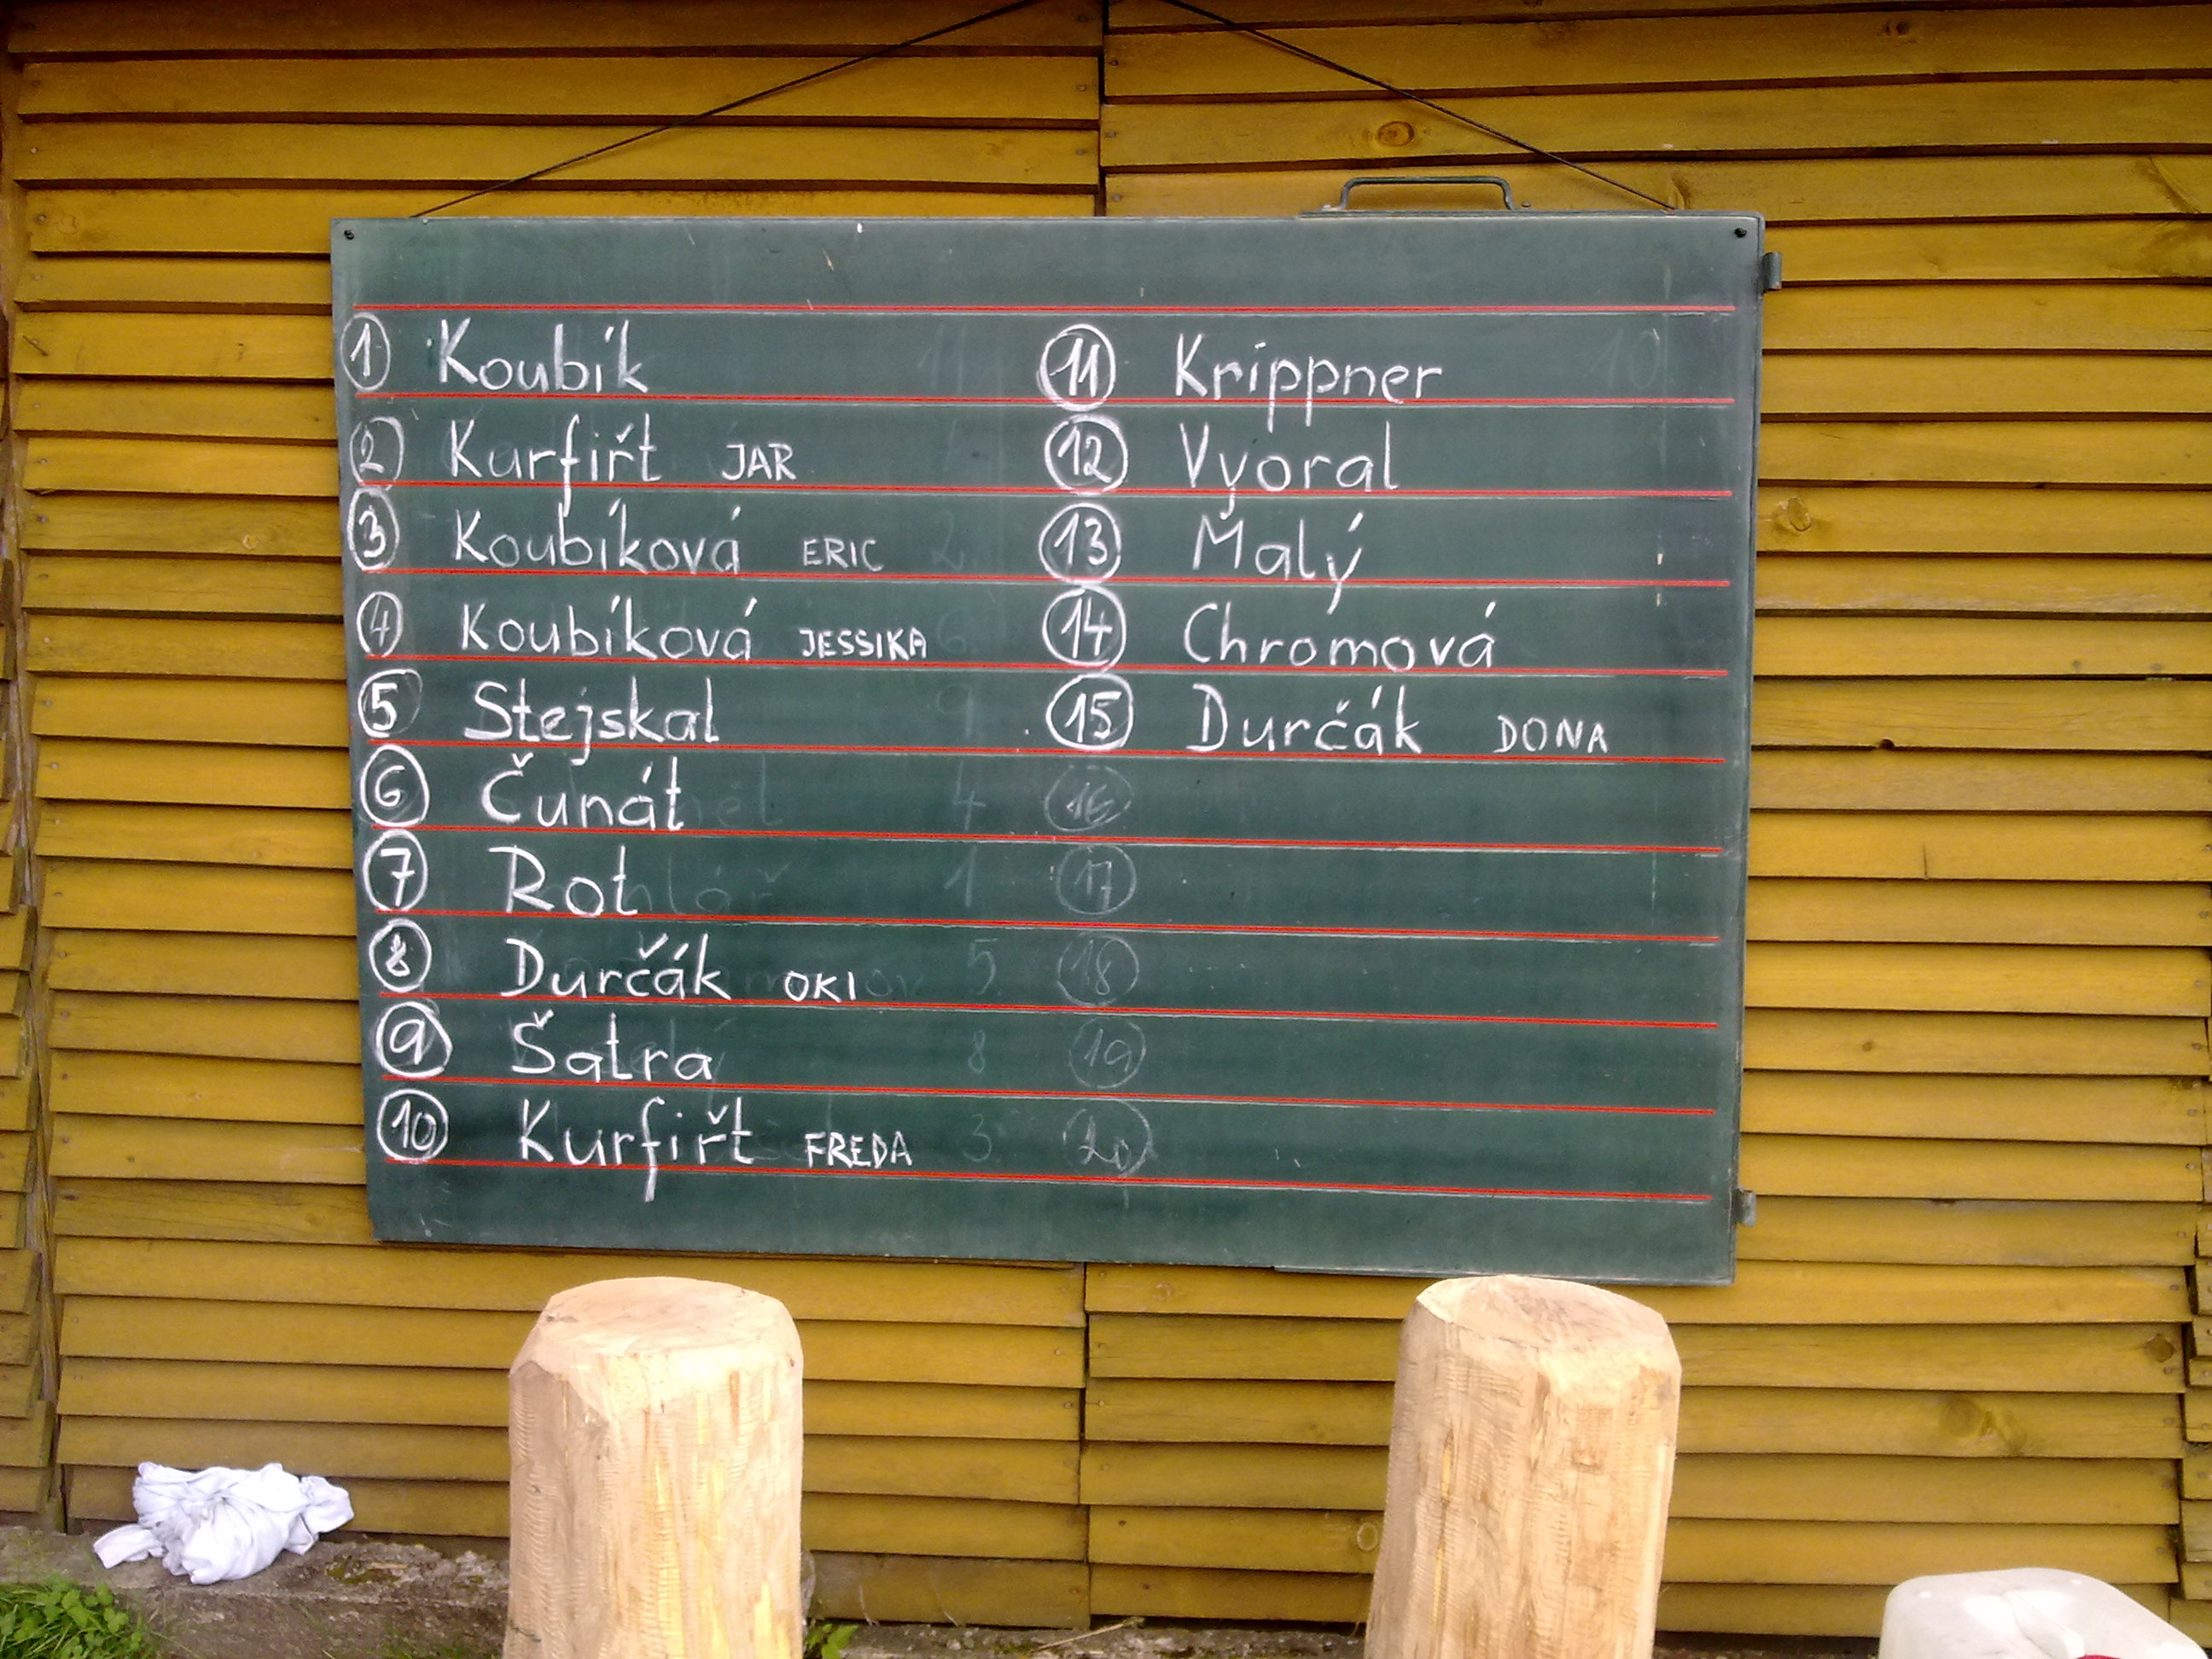 1 Koubík
2 Kurfiřt JAR
3 Koubíková ERIC
4 Koubíková JESSIKA
5 Stejskal
6 Čunát
7 Rot
8 Durčák OKI
9 Šatra
10 Kurfiřt FREDA
11 Krippner
12 Vyoral
13 Malý
14 Chromová
15 Durčák DONA
16
17
18
19
20